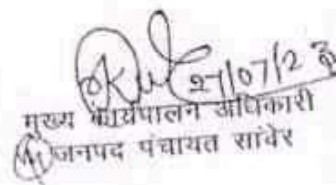 27/07/23
मुख्य कार्यपालन अधिकारी
जनपद पंचायत सांवेर